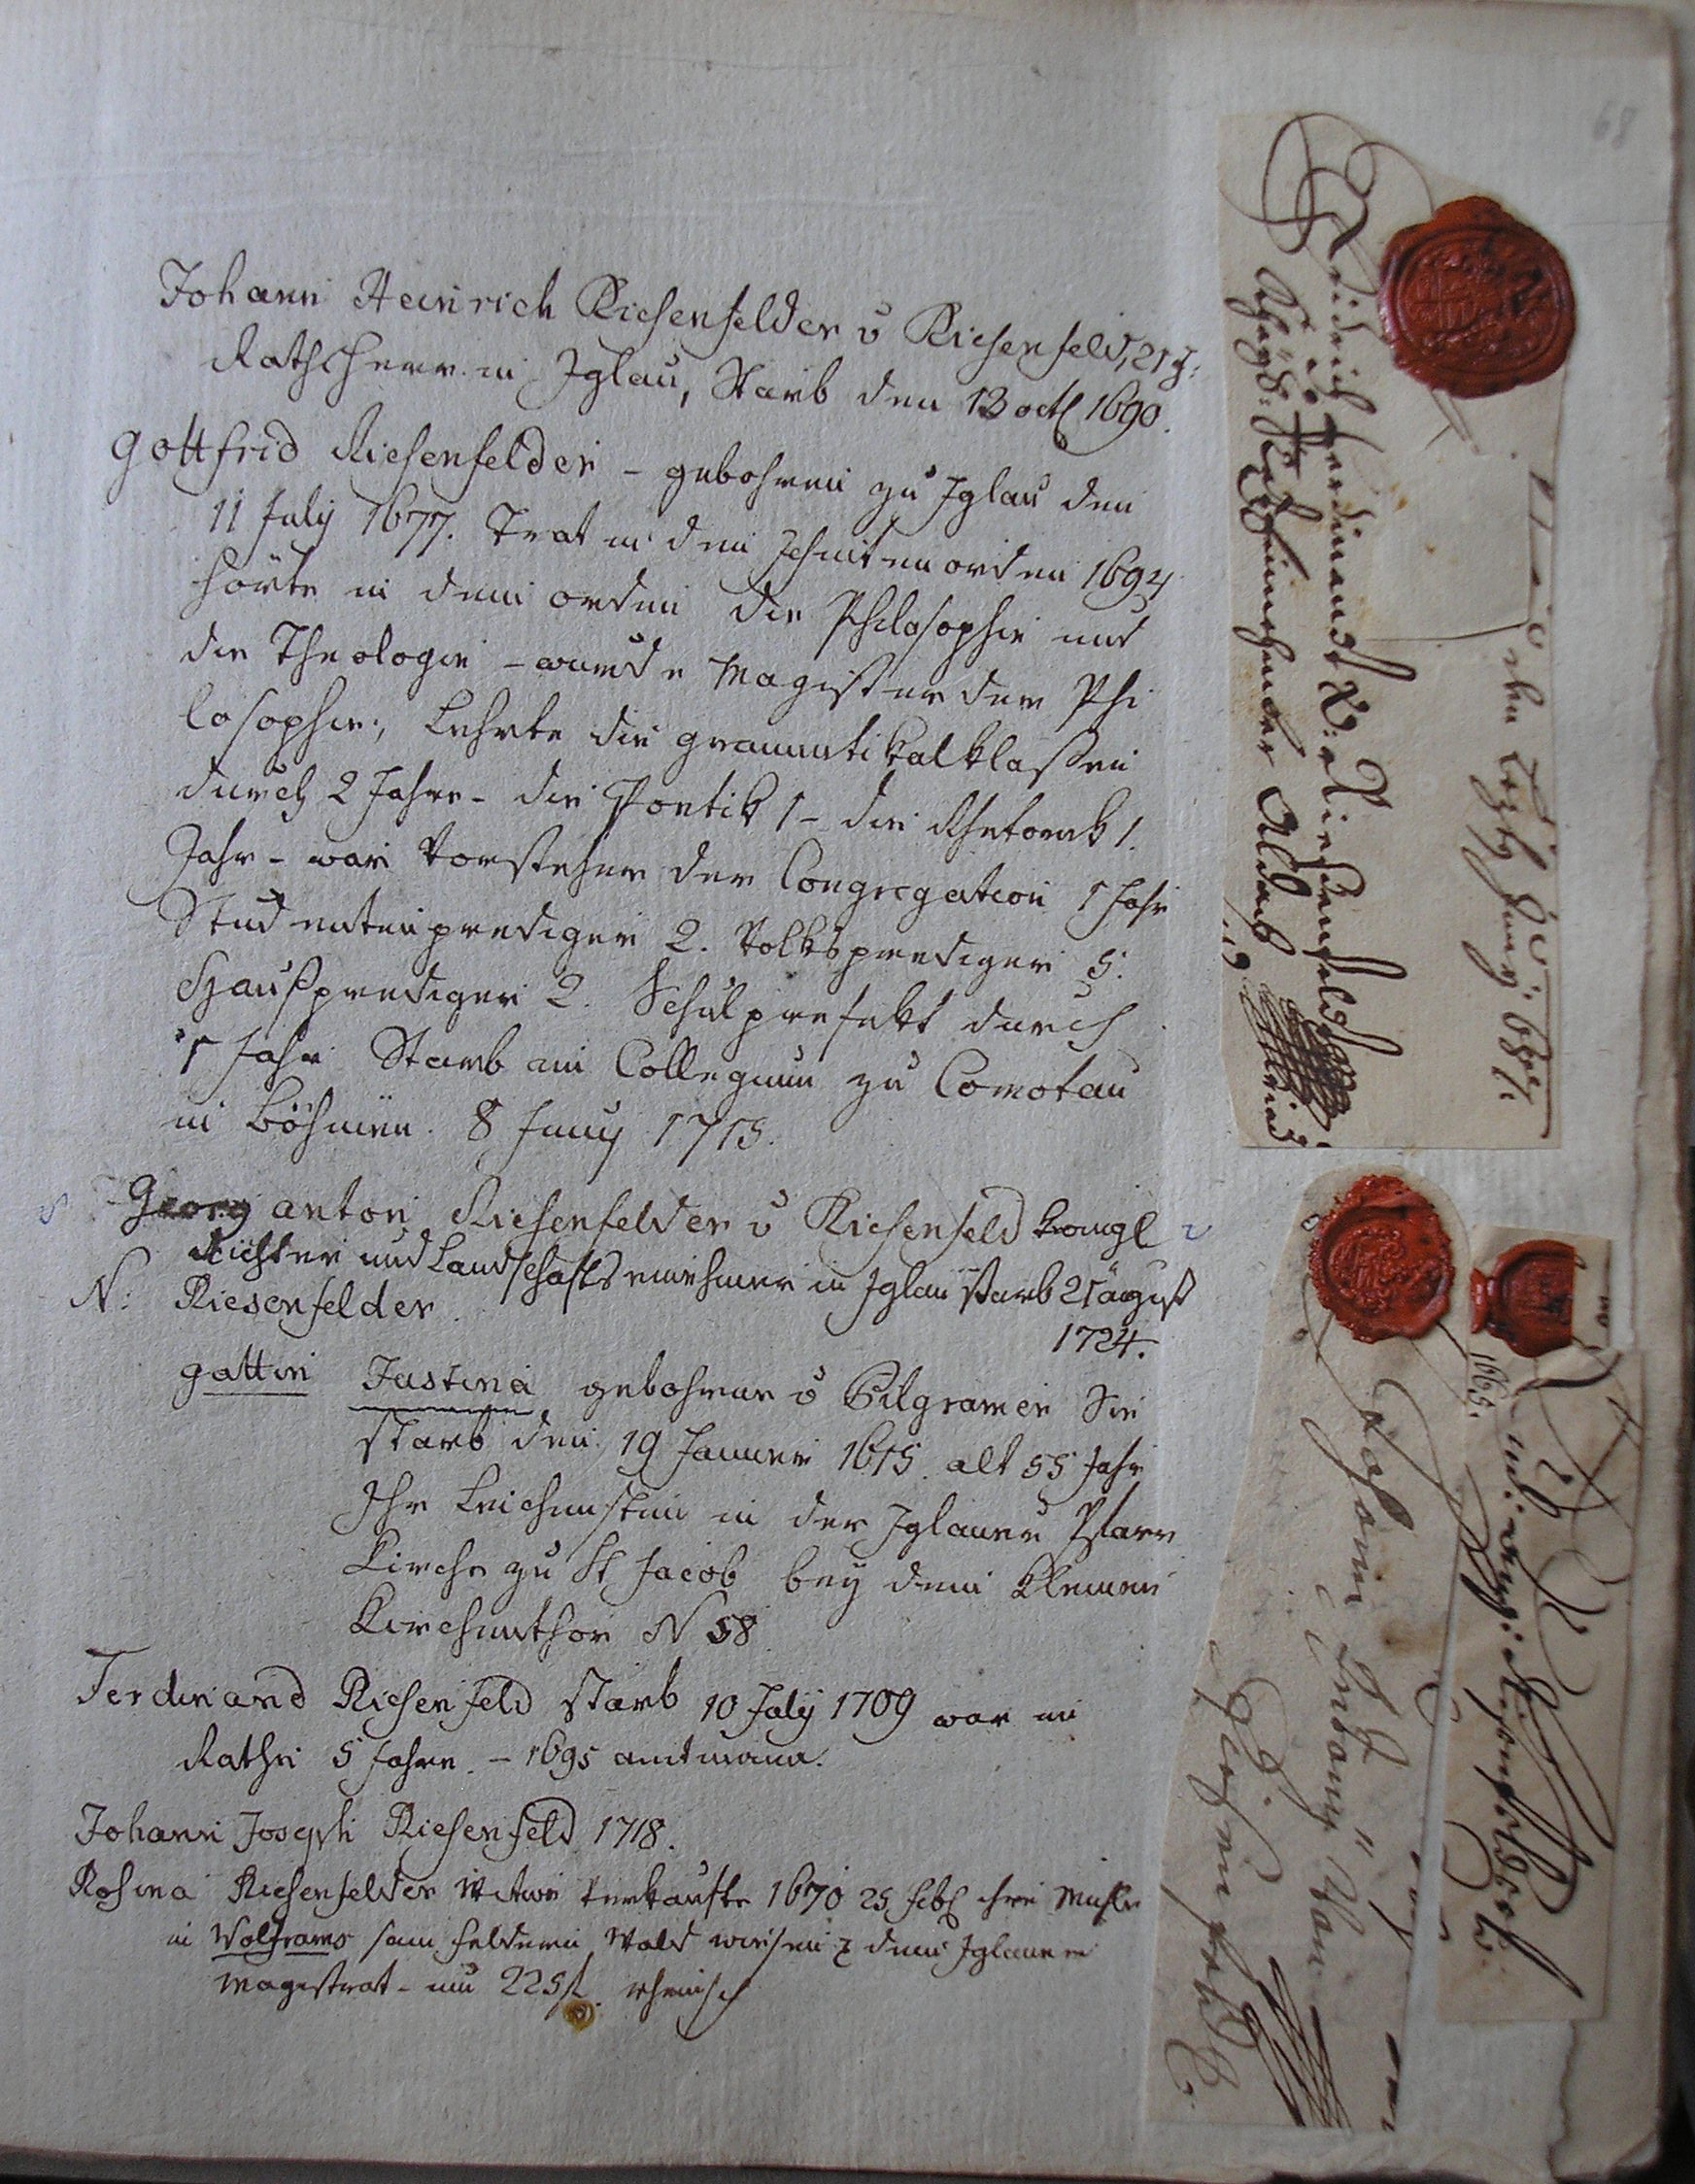 68
Johann Heinrich Riesenfelder v Riesenfeld, 21 J:
Rathsherr in Iglau, starb den 13 octb 1690.
Gottfrid Riesenfelder - gebohren zu Iglau den
11 July 1677. Trat in den Jesuitenorden 1694
hörte in dem orden die Philosophie und
die Theologie - wurde Magister der Phi
losophie; Lehrte die grammatikalklassen
durch 2 Jahre - die Poetik 1 - die Rhetorik 1.
Jahr - war Vorsteher der Congregation 1 Jahr
Studentenprediger 2. Volksprediger 5.
Haußprediger 2. Schulprefekt durch
1 Jahr Starb im Collegium zu Comotau
in Böhmen. 8 Juny 1715.
Georg anton Riesenfelder v Riesenfeld königl
Richter und Landschaftseinnehmer in Iglau starb 21 august
1724.
N: Riesenfelder.
gattin Justina gebohrne v Pilgramen Sie
starb den 19 Janner 1615. alt 55 Jahr
Ihr Leichenstein in der Iglauer Pfarr
Kirche zu St Jacob bey dem kleinen
Kirchenthor N 58
Ferdinand Riesenfeld starb 10 July 1709 war im
Rathe 5 Jahre. - 1695 amtmann.
Johann Joseph Riesenfeld 1718.
Rosina Riesenfelder Witwe verkaufte 1670 25 febr ihre Muhle
in Wolframs sam feldern, Wald wiesen dem Iglauer
Magistrat - um 225 fl. rheinisch
Fridrich Ferdinandt V: Riesenfeldt
1665.
Johann Antonj Von
Riesenfeldt